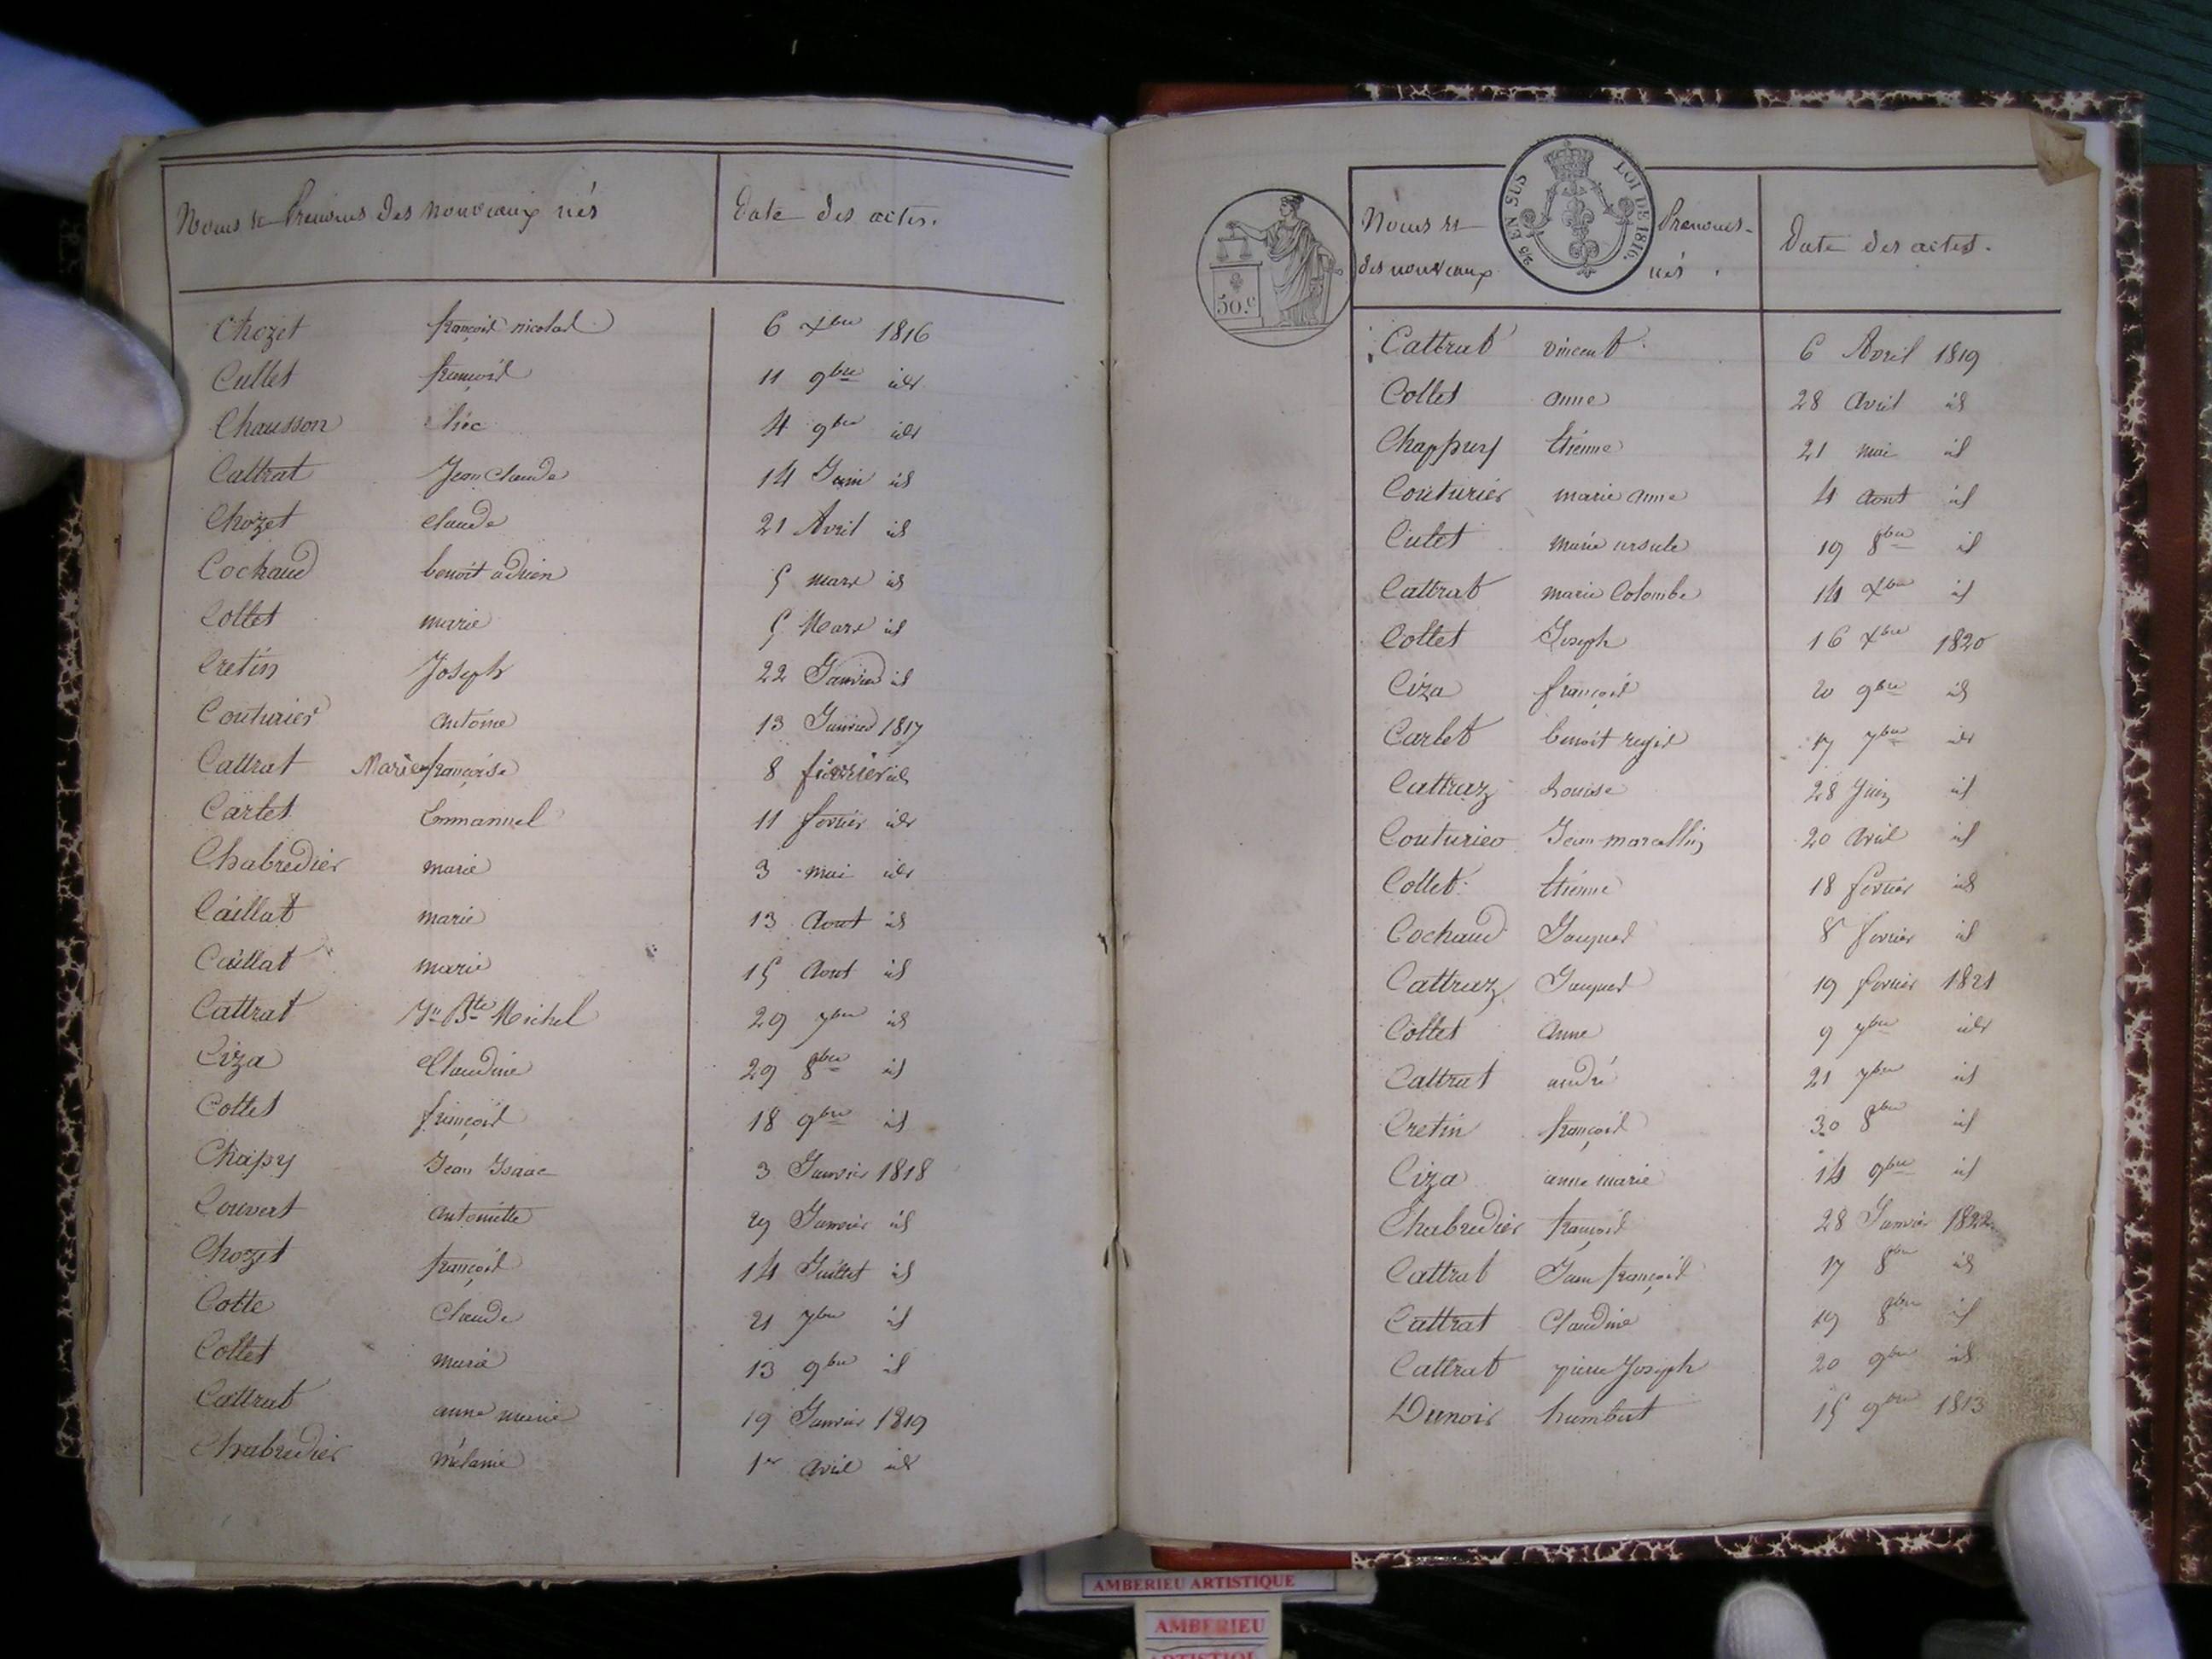 Noms et Prenoms des nouveaux nés Date des actes.
Chozet françois nicolas 6 xbre 1816
Cullet françois 11 9bre idr
Chausson 4 9bre idr
Cattrat Jean Claude 14 Juin id
Chozet claude 21 Avril id
Cochaud benoit adrien 5 mars id
Collet marie 5 Mars id
Cretin Joseph 22 Janvier id
Couturier antoine 13 Janvier 1817
Cattrat Marie françoise 8 février id
Cartet Emmanuel 11 fevrier idr
Chabredier marie 3 mai idr
Caillat marie 13 Aout id
Caillat marie 15 Aout id
Cattrat Jn Bte Michel 29 7bre id
Ciza Claudine 29 8bre id
Collet françois 18 9bre id
Chapy Jean Isaac 3 Janvier 1818
Couvert antoinette 29 Janvier id
Chozet françois 14 Juillet id
Cotte Claude 21 7bre id
Collet marie 13 9bre id
Cattrat anne marie 19 Janvier 1819
Chabredier mélanie 1er avril idr
50.c
5/2 EN SUS LOI DE 1816.
Noms et Prenoms
des nouveaux nés. Date des actes.
Cattrat vincent 6 Avril 1819
Collet anne 28 Avril id
Chappuy Etienne 21 mai id
Couturier marie anne 4 Aout id
Culet marie ursule 19 8bre id
Cattrat marie Colombe 14 xbre id
Collet Joseph 16 xbre 1820
Ciza françois 20 9bre id
Carlet benoit regis 17 7bre idr
Cattraz Louise 28 Juin id
Couturier Jean marcellin 20 Avril id
Collet Etienne 18 fevrier id
Cochaud Jacques 8 fevrier id
Cattraz Jacques 19 fevrier 1821
Collet Anne 9 7bre idr
Cattrat andré 21 7bre id
Cretin françois 30 8bre id
Ciza anne marie 14 9bre id
Chabredier françois 28 Janvier 1822
Cattrat Jean françois 17 8bre id
Cattrat Claudine 19 8bre id
Cattrat pierre Joseph 20 9bre id
Dunoir humbert 15 9bre 1813
AMBERIEU ARTISTIQUE
AMBERIEU
ARTISTIQUE